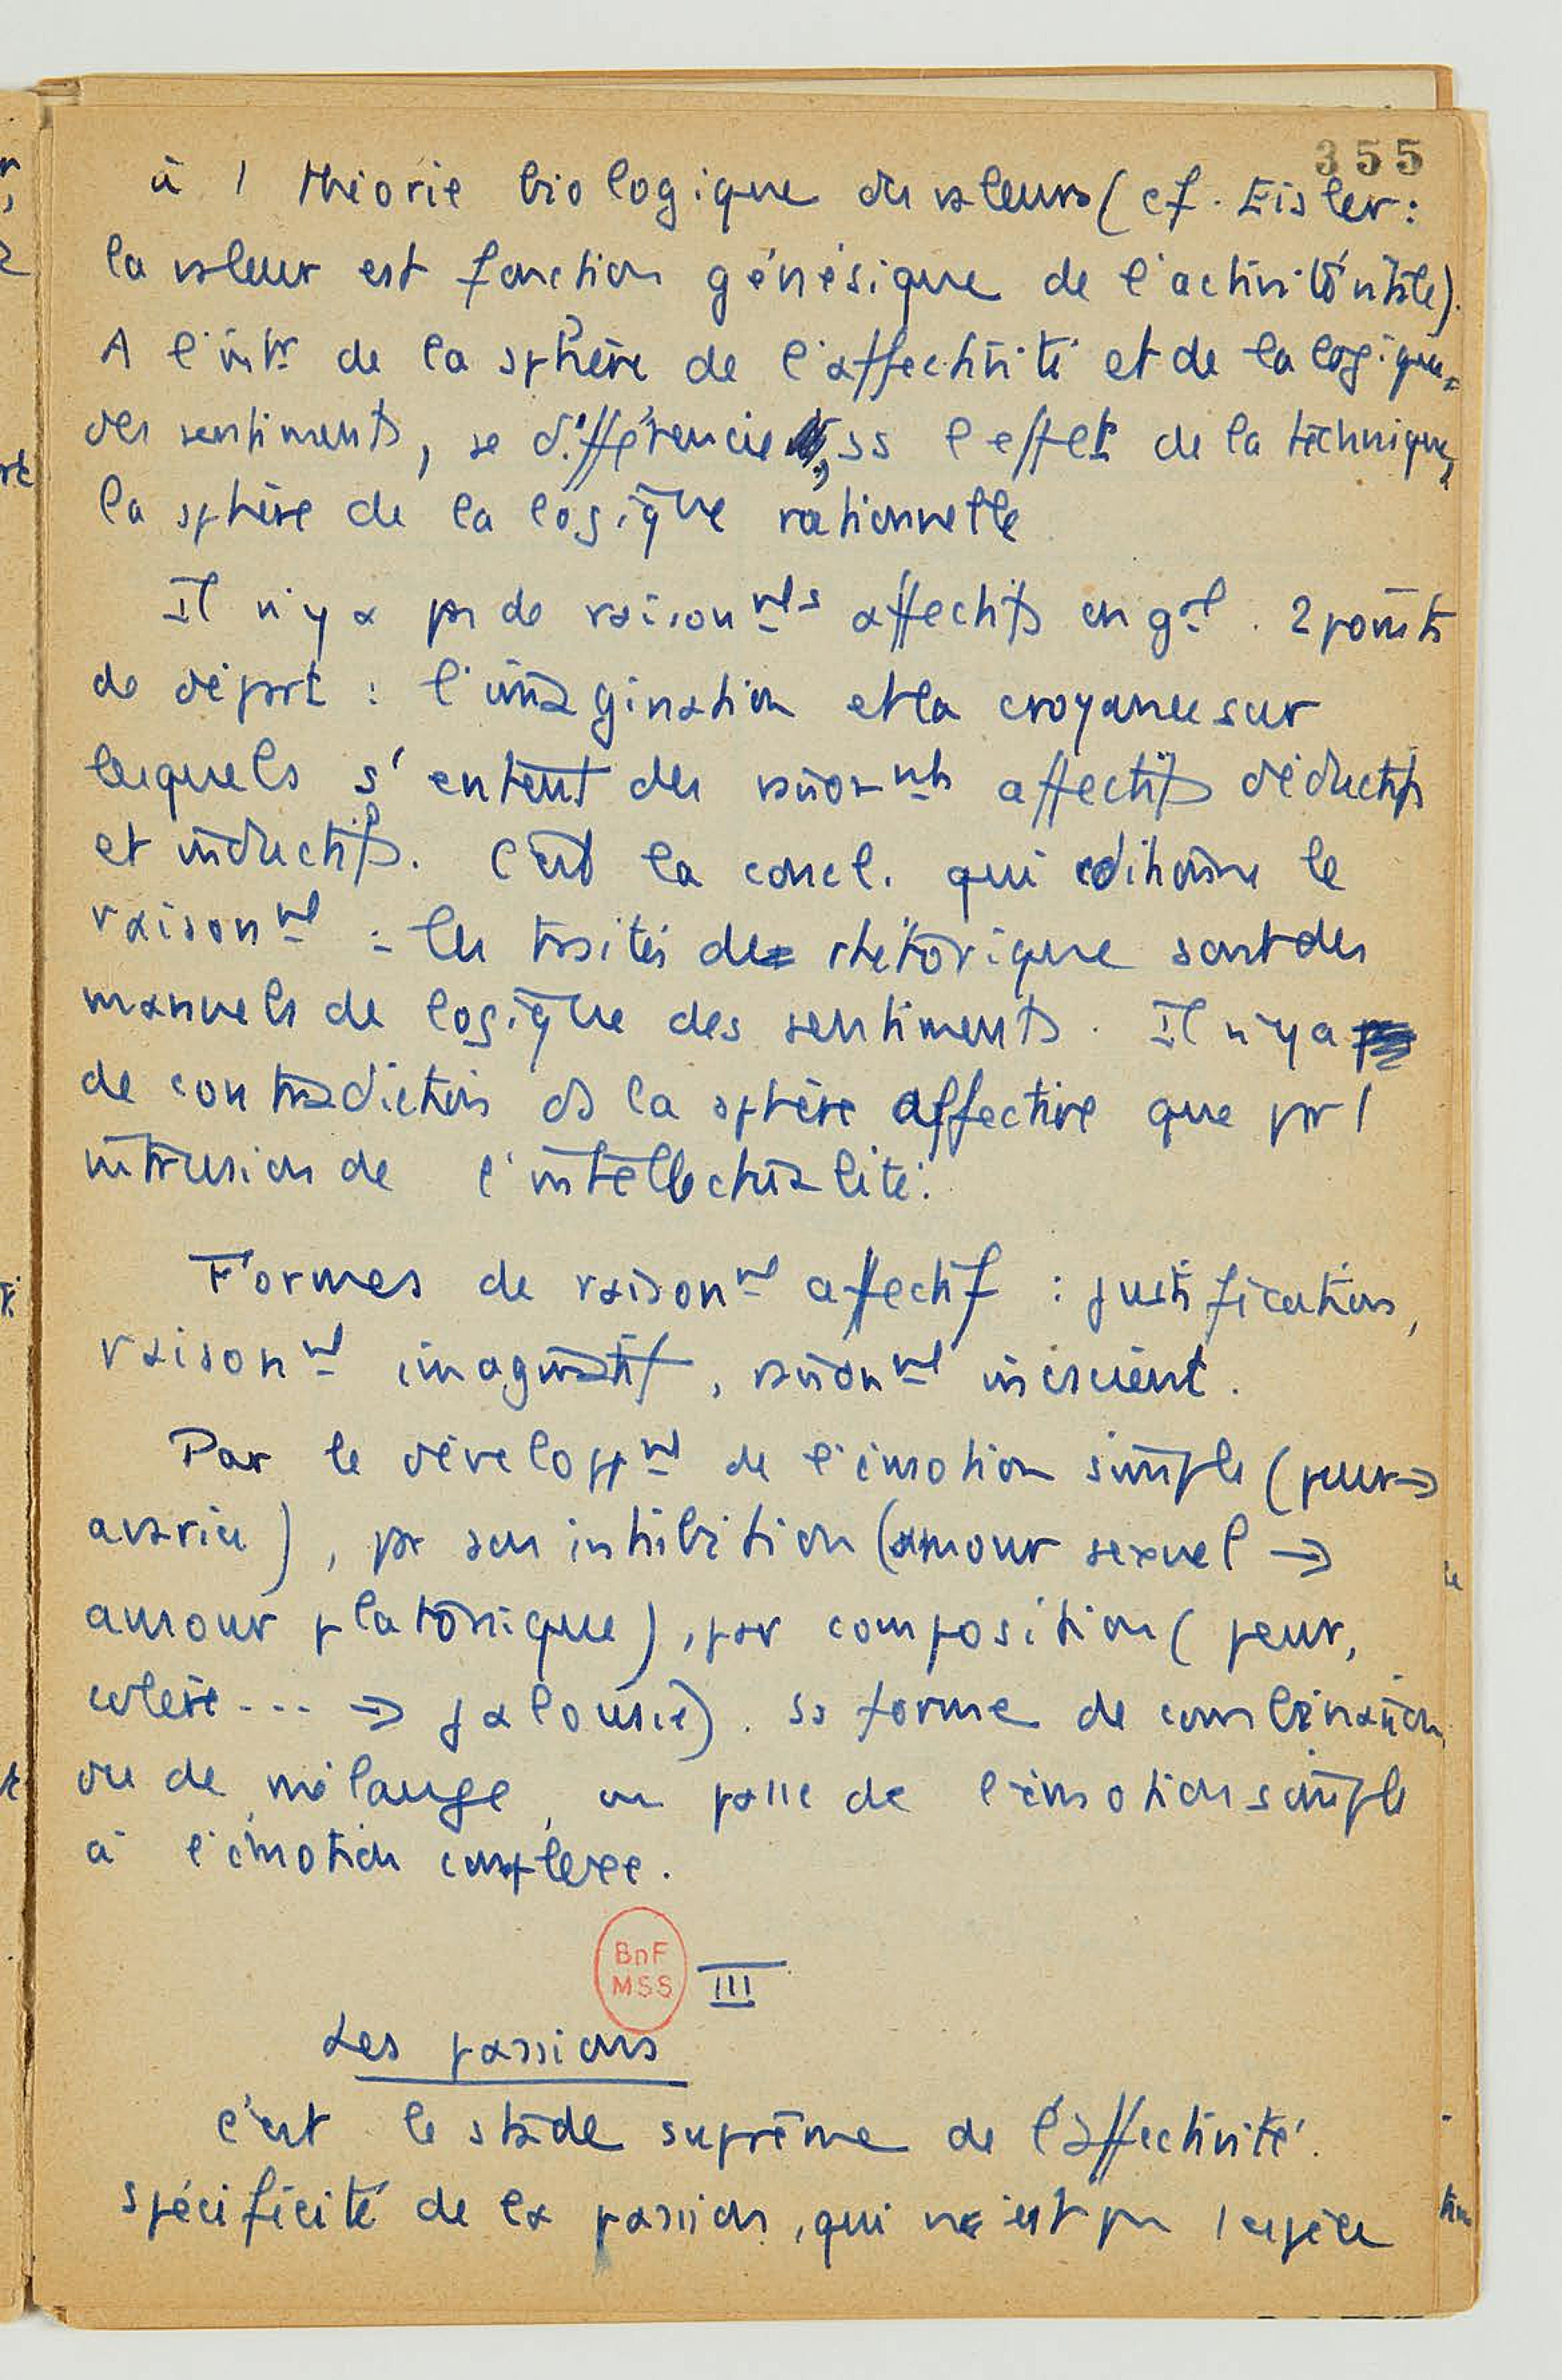 355
à 1 théorie biologique des valeurs (cf. Eisler :
la valeur est fonction génésique de l'activité vitale).
A l'intr de la sphère de l'affectivité et de la logique
des sentiments, se différencie, ss l'effet de la technique,
la sphère de la logique rationnelle
Il n'y a pas de raisonnts affectifs en gal. 2 points
de départ : l'imagination et la croyance sur
lesquels s'entent des raisonnts affectifs déductifs
et inductifs. C'est la concl. qui cditionne le
raisonnt : les traités de rhétorique sont des
manuels de logique des sentiments. Il n'y a
de contradiction ds la sphère affective que par 1
intrusion de l'intellectualité.
Formes de raisonnt affectif : justification,
raisonnt imaginatif, raisonnt inscient.
Par le développnt de l'émotion simple (peur →
avarice), par son inhibition (amour sexuel →
amour platonique), par composition (peur,
colère... → jalousie). ss forme de combinaison
ou de mélange, on passe de l'émotion simple
à l'émotion complexe.
BnF
MSS
III
Les passions
C'est le stade suprême de l'affectivité.
Spécificité de la passion, qui n'est pas 1 espèce